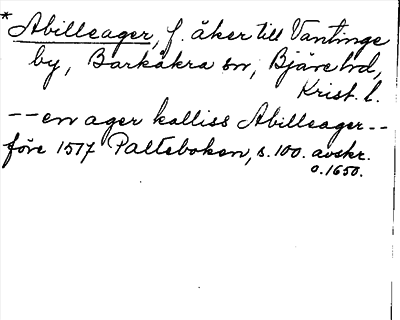 * Abilleager, f. åker till Vantinge
by, Barkåkra sn, Bjäre hd,
Krist. l.
-- en ager kalliss Abilleager --
före 1517 Paltebokon, s. 100. avskr.
o. 1650.